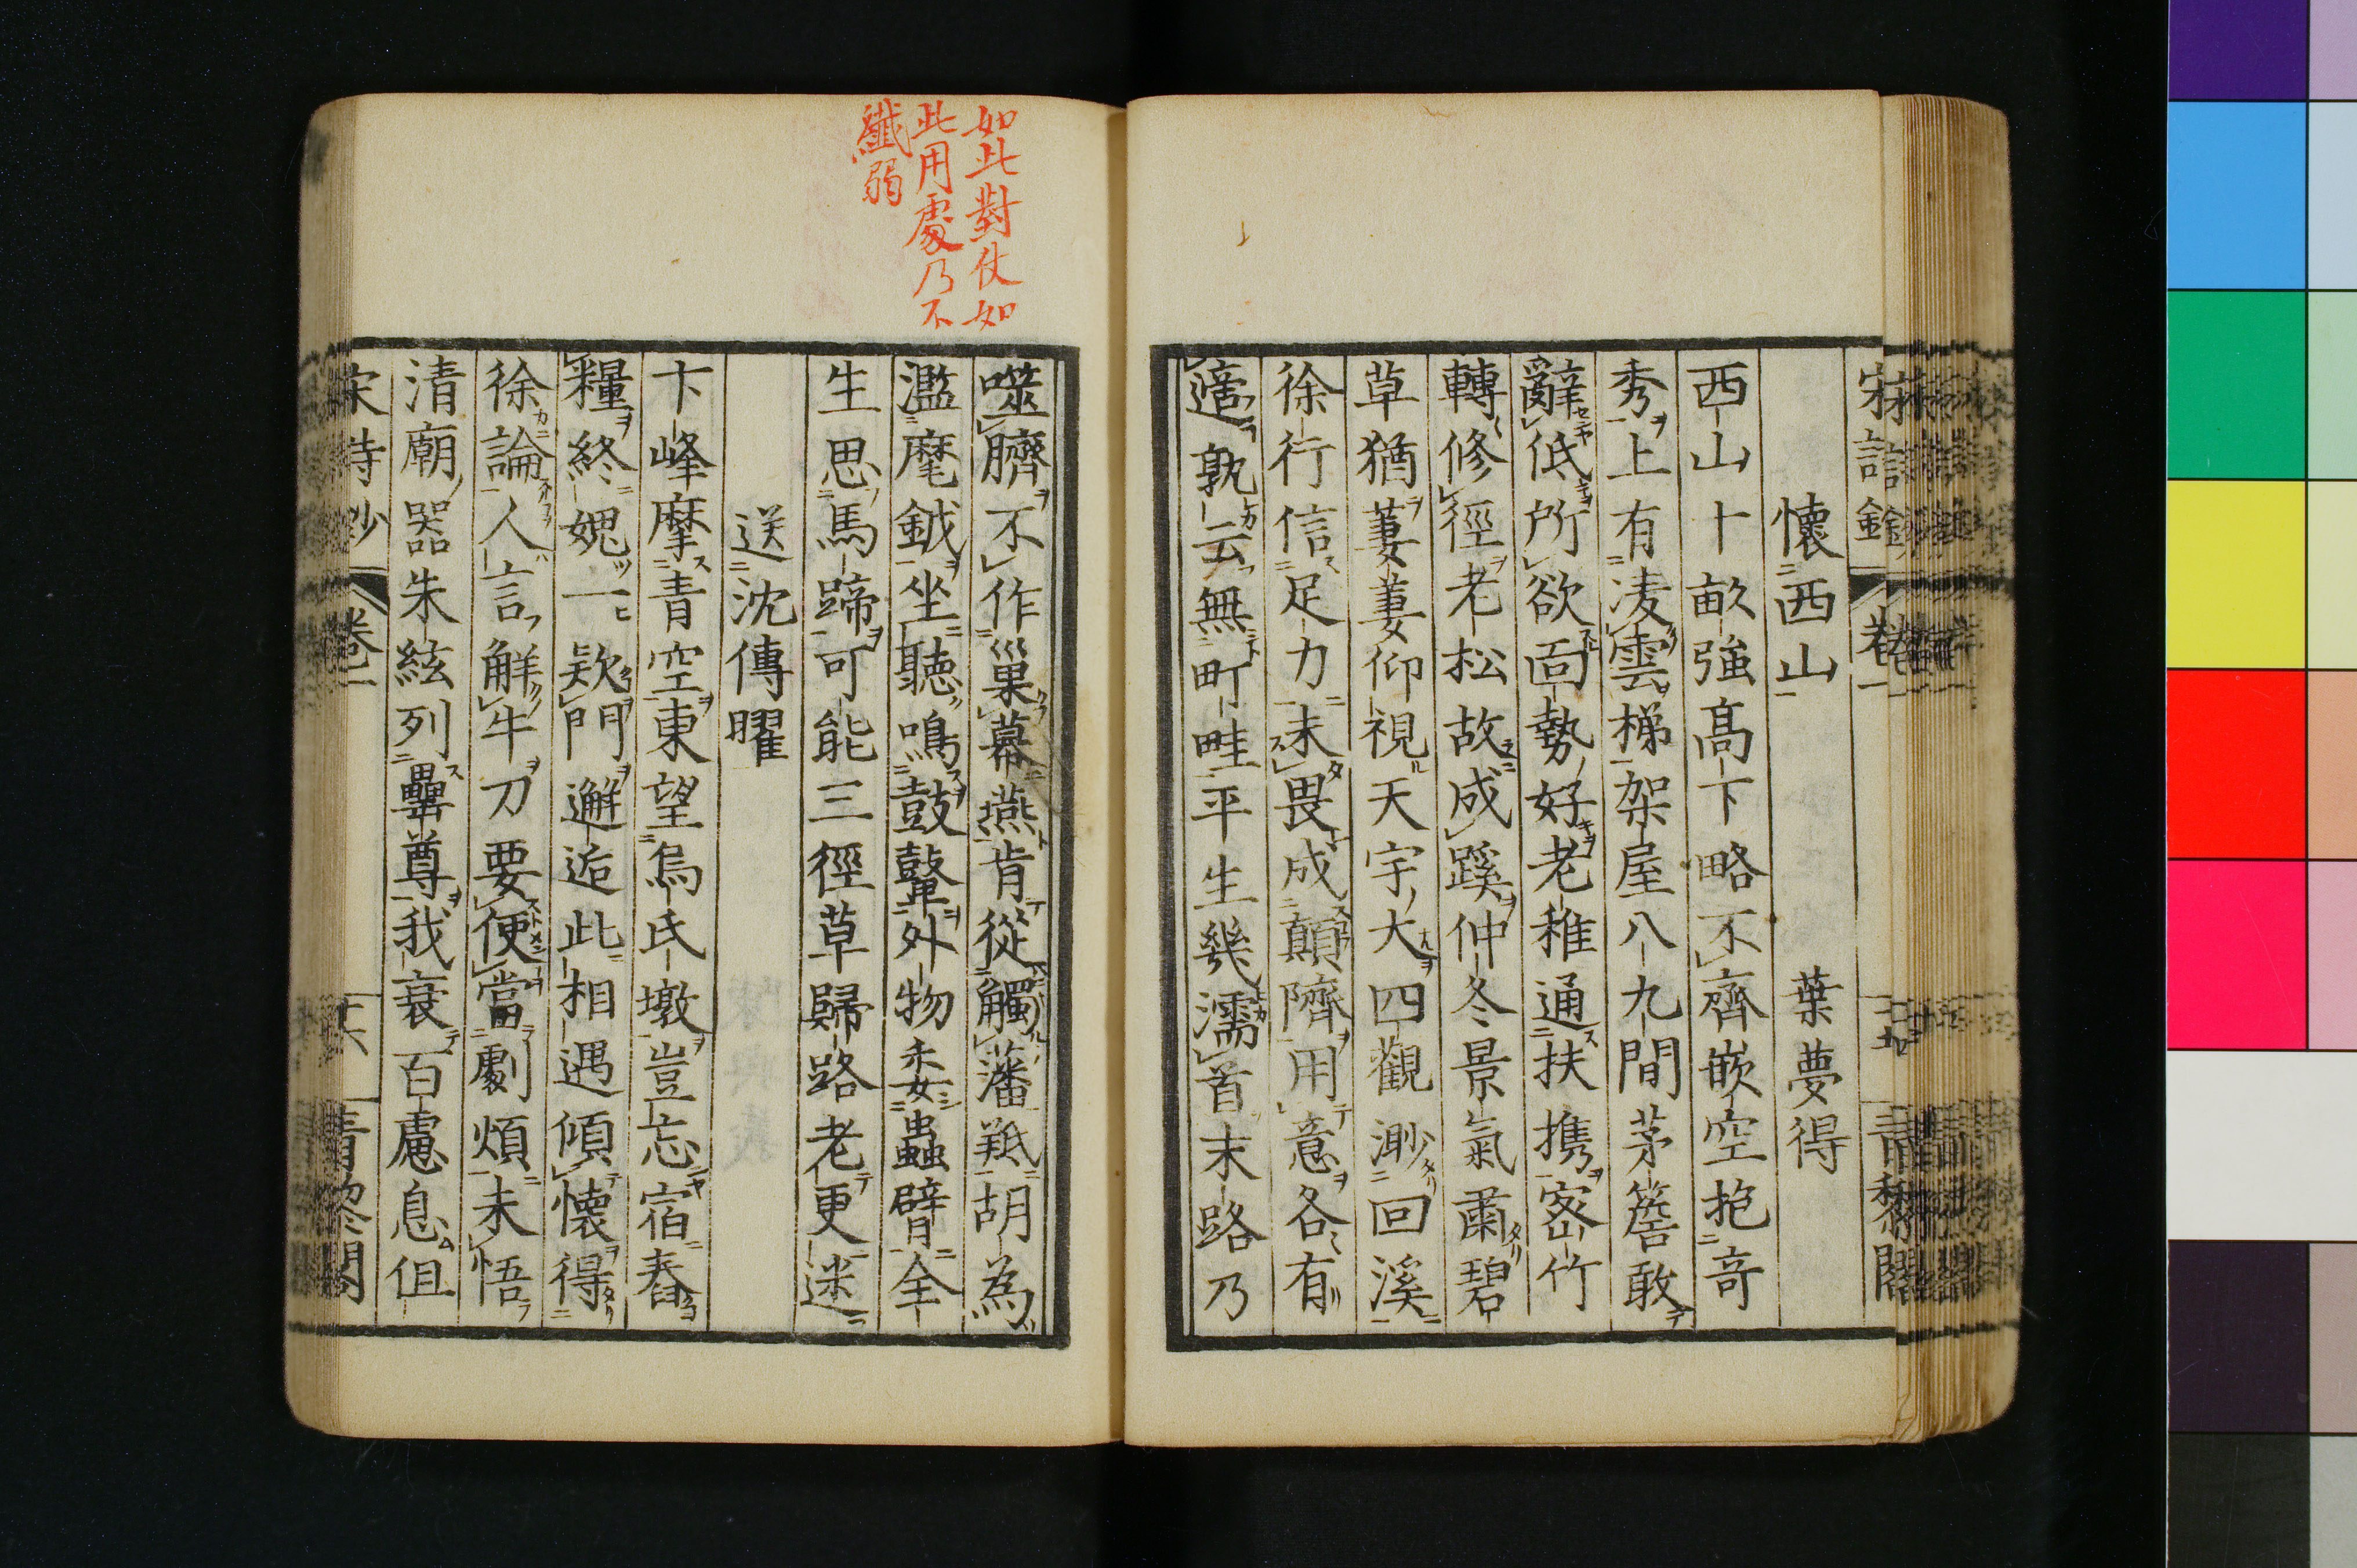 懷西山
葉夢得
西山十畝強高下略不齊嵌空抱奇
秀上有凌雲梯架屋八九間茅簷敢
辭低所欲面勢好老稚通扶攜密竹
轉修徑老松故成蹊仲冬景氣肅碧
草猶萋萋仰視天宇大四觀渺回溪
徐行信足力未畏成顛隮用意各有
適孰云無町畦平生幾濡首末路乃
如此對仗如
此用處乃不
纖弱
噬臍不作巢幕燕肯從觸藩羝胡為
濫麾鉞坐聽鳴鼓鼙外物委蟲臂全
生思馬蹄可能三徑草歸路老更迷
送沈傳曜
卞峰摩青空東望烏氏墩豈忘宿舂
糧終媿一款門邂逅此相遇傾懷得
徐論人言解牛刀要便當劇煩未悟
清廟器朱絃列罍尊我衰百慮息但
宋詩鈔 卷一 青黎閣